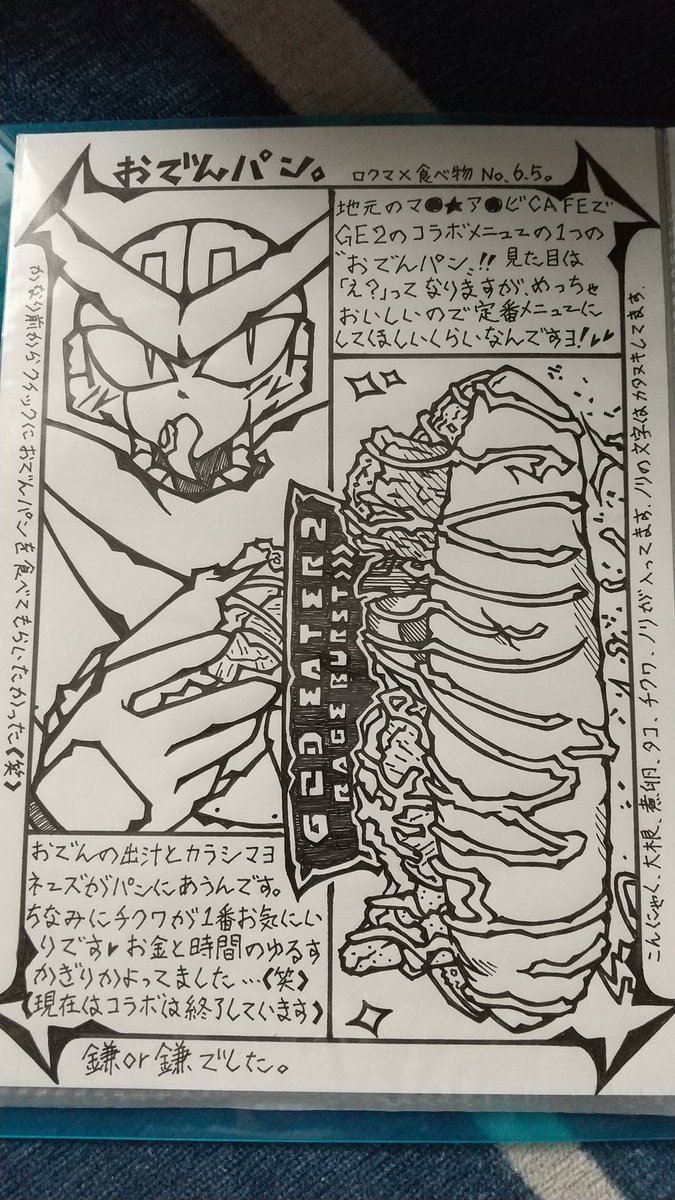 おでんパン。
ロクマ×食べ物 No.6.5。
地元のマ●★ア●ビCAFEで
GE2のコラボメニューの1つの
“おでんパン”!! 見た目は
「え?」ってなりますが、めっちゃ
おいしいので定番メニューに
してほしいくらいなんですヨ!♥♥
かなり前からクイックにおでんパンを食べてもらいたかった《笑》
GOD EATER 2
RAGE BURST >>>
こんにゃく、大根、煮卵、タコ、チクワ、ノリが入ってます。ノリの文字はカタヌキしてます。
おでんの出汁とカラシマヨ
ネーズがパンにあうんです。
ちなみにチクワが1番お気にい
りです♥ お金と時間のゆるす
かぎりかよってました…《笑》
《現在はコラボは終了しています》
鎌or鎌でした。